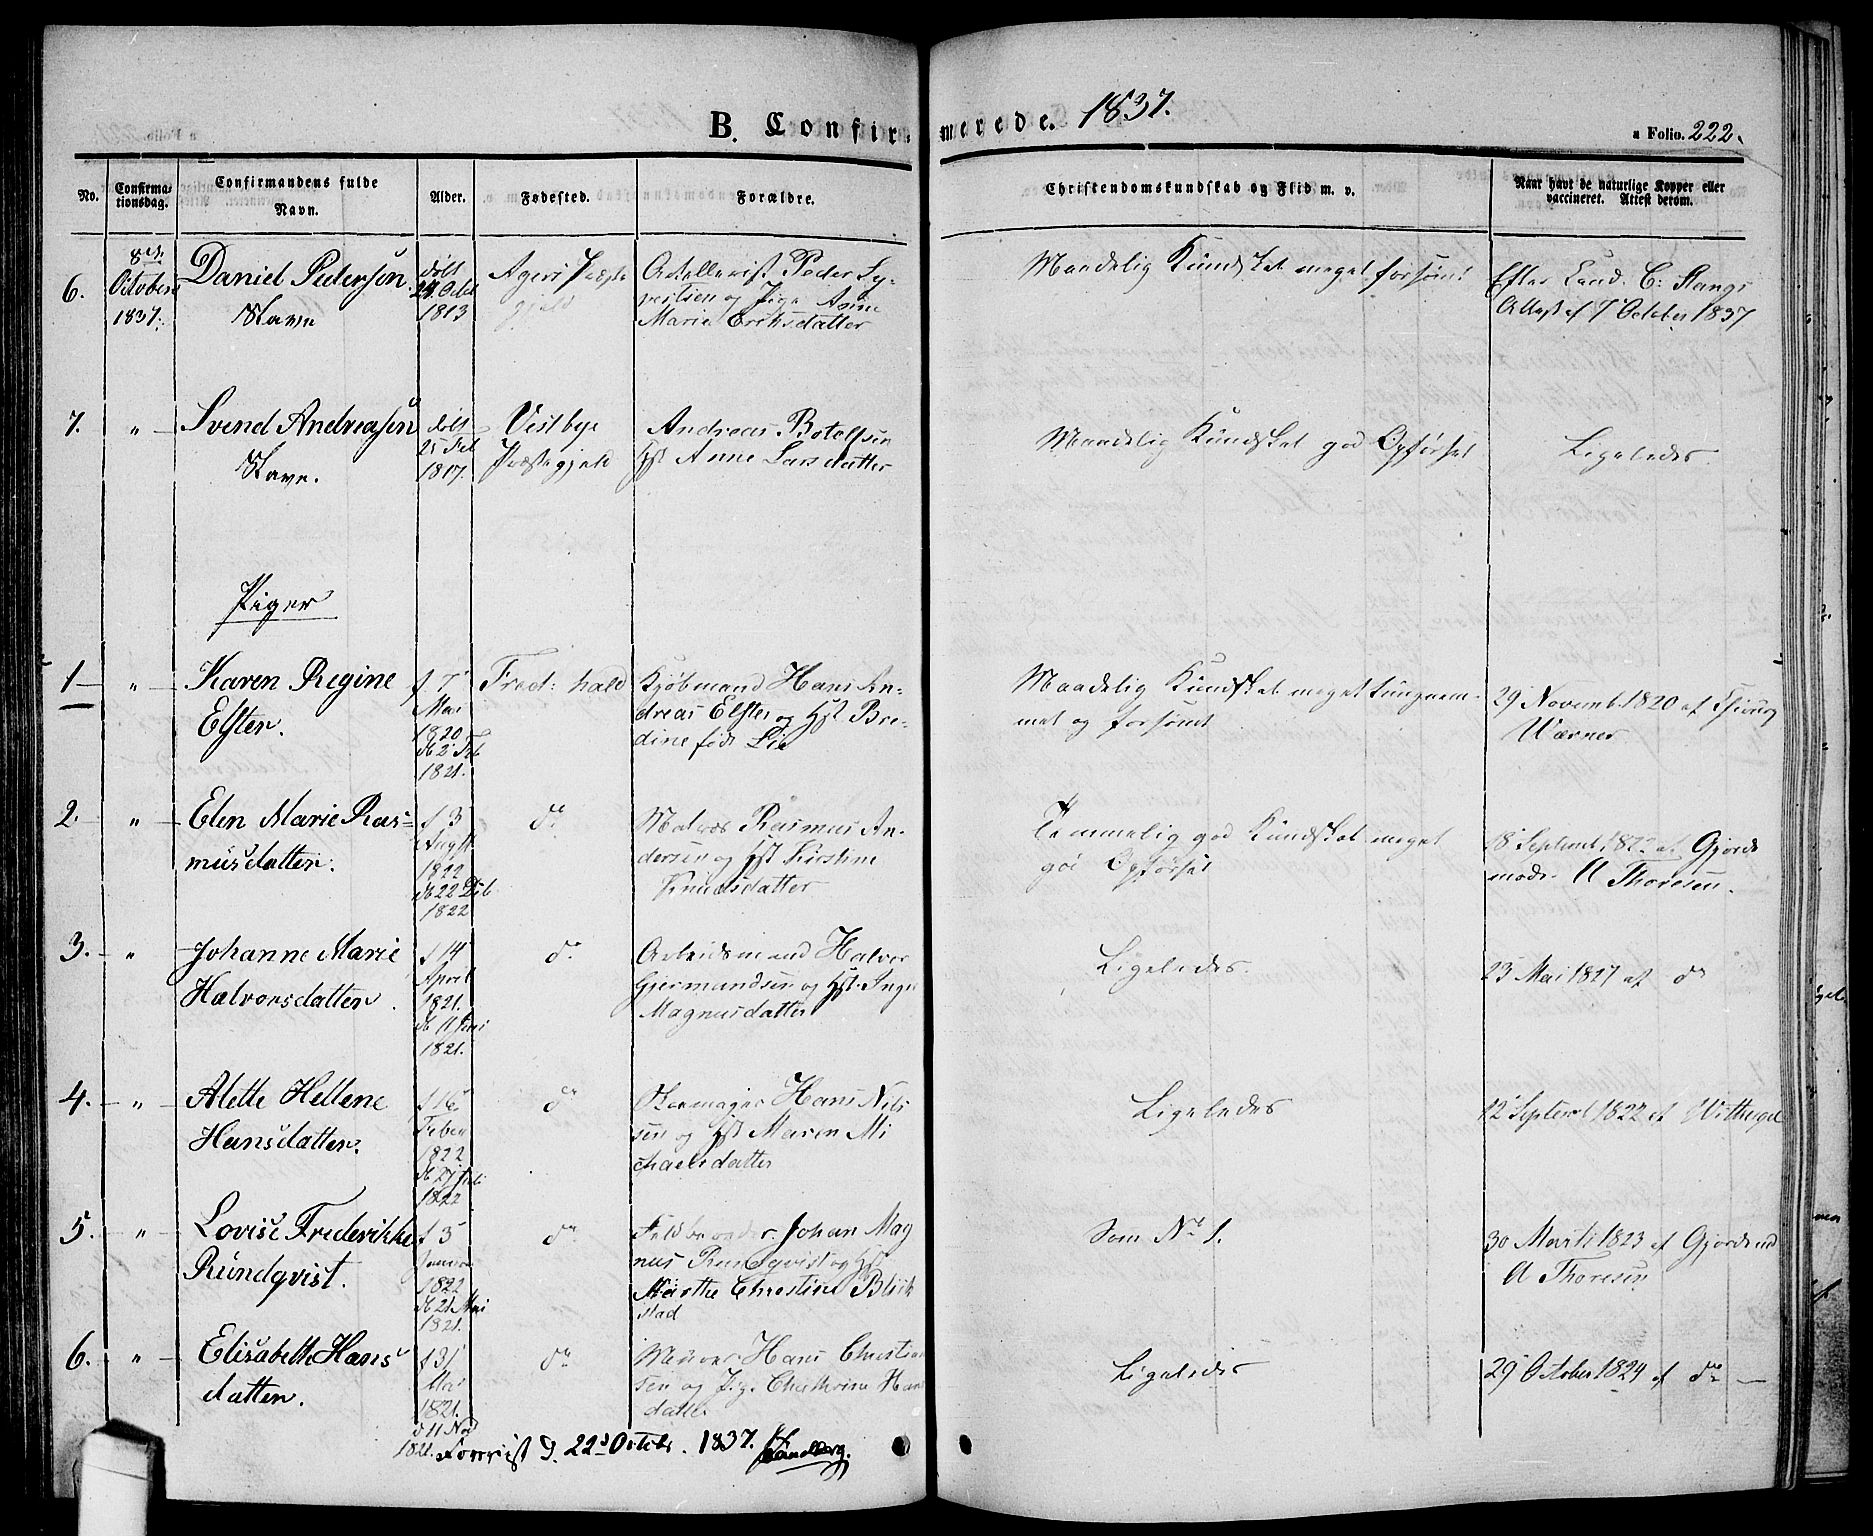 B. Confirmerede. 1837.
a Folio. 222.
No.
Confirma-
tionsdag.
Confirmandens fulde
Navn.
Alder.
Fødested.
Forældre.
Christendomskundskab og Flid m. v.
Naar havt de naturlige Kopper eller
vaccineret. Attest derom.
6.
8de
October
1837.
Daniel Pedersen
Slave
døbt
24 Octb
1813
Agers Præste
gjeld
Artellerist Peder Sy-
vertsen og Pige Anne
Marie Eriksdatter
Maadelig Kundskab meget forsømt
Efter Cand. C: Stangs
Attest af 7 October 1837
7.
"
Svend Andreasen
Slave.
døbt
25 Feb
1817.
Vestbye
Præstegjeld
Andreas Botolfsen
Hst Anne Larsdatter
Maadelig Kundskab god Opførsel
Ligeledes.
Piger
1
"
Karen Regine
Elster.
f 7
Mai
1820
db 2 Feb
1821.
Fred: hald
Kjøbmand Hans An-
dreas Elster og Hst Bre-
dine født Lie
Maadelig Kundskab meget tungnem-
met og forsømt
29 Novemb 1820 af
Wærner
2.
"
Elen Marie Ras-
musdatter.
f 3
Augst
1822
db 22 Deb
1822
do
Matros Rasmus An-
dersen og Hst Kirstine
Knudsdatter
Temmelig god Kundskab meget
god Opførsel
18 Septemb af Gjorde
mod. A Thoresen.
3.
"
Johanne Marie
Halvorsdatter
f 14
April
1821.
db 11 Juni
1821.
do
Arbeidsmand Halvor
Gjermundsen og Hst. Inge
Magnusdatter
Ligeledes.
23 Mai 1827 af do
4.
"
Alette Hellene
Hansdatter.
f 16
Feber
1822
1822
do
Skomager Hans Nils
sen og Hst Maren Mi
chaelsdatter
Ligeledes
12 Septemb 1822 af
5.
"
Lovise Frederikke
Rundqvist.
f 3
Januar
1822
db 21 Mai
1821.
do
Johan Mag
nus Rundqvist og Hst
Marthe Christine Blik
stad
Som No 1.
30 Marts 1823 af Gjordemod
A Thoresen
6.
"
Elisabethe Hans
datter.
f 31
Mai
1821.
d 11 Nov
1821.
do
Muurer Hans Christian
sen og Pige. Cathrine Han
datter
Ligeledes
29 October 1824 af do
d. 22d Octobr. 1837.